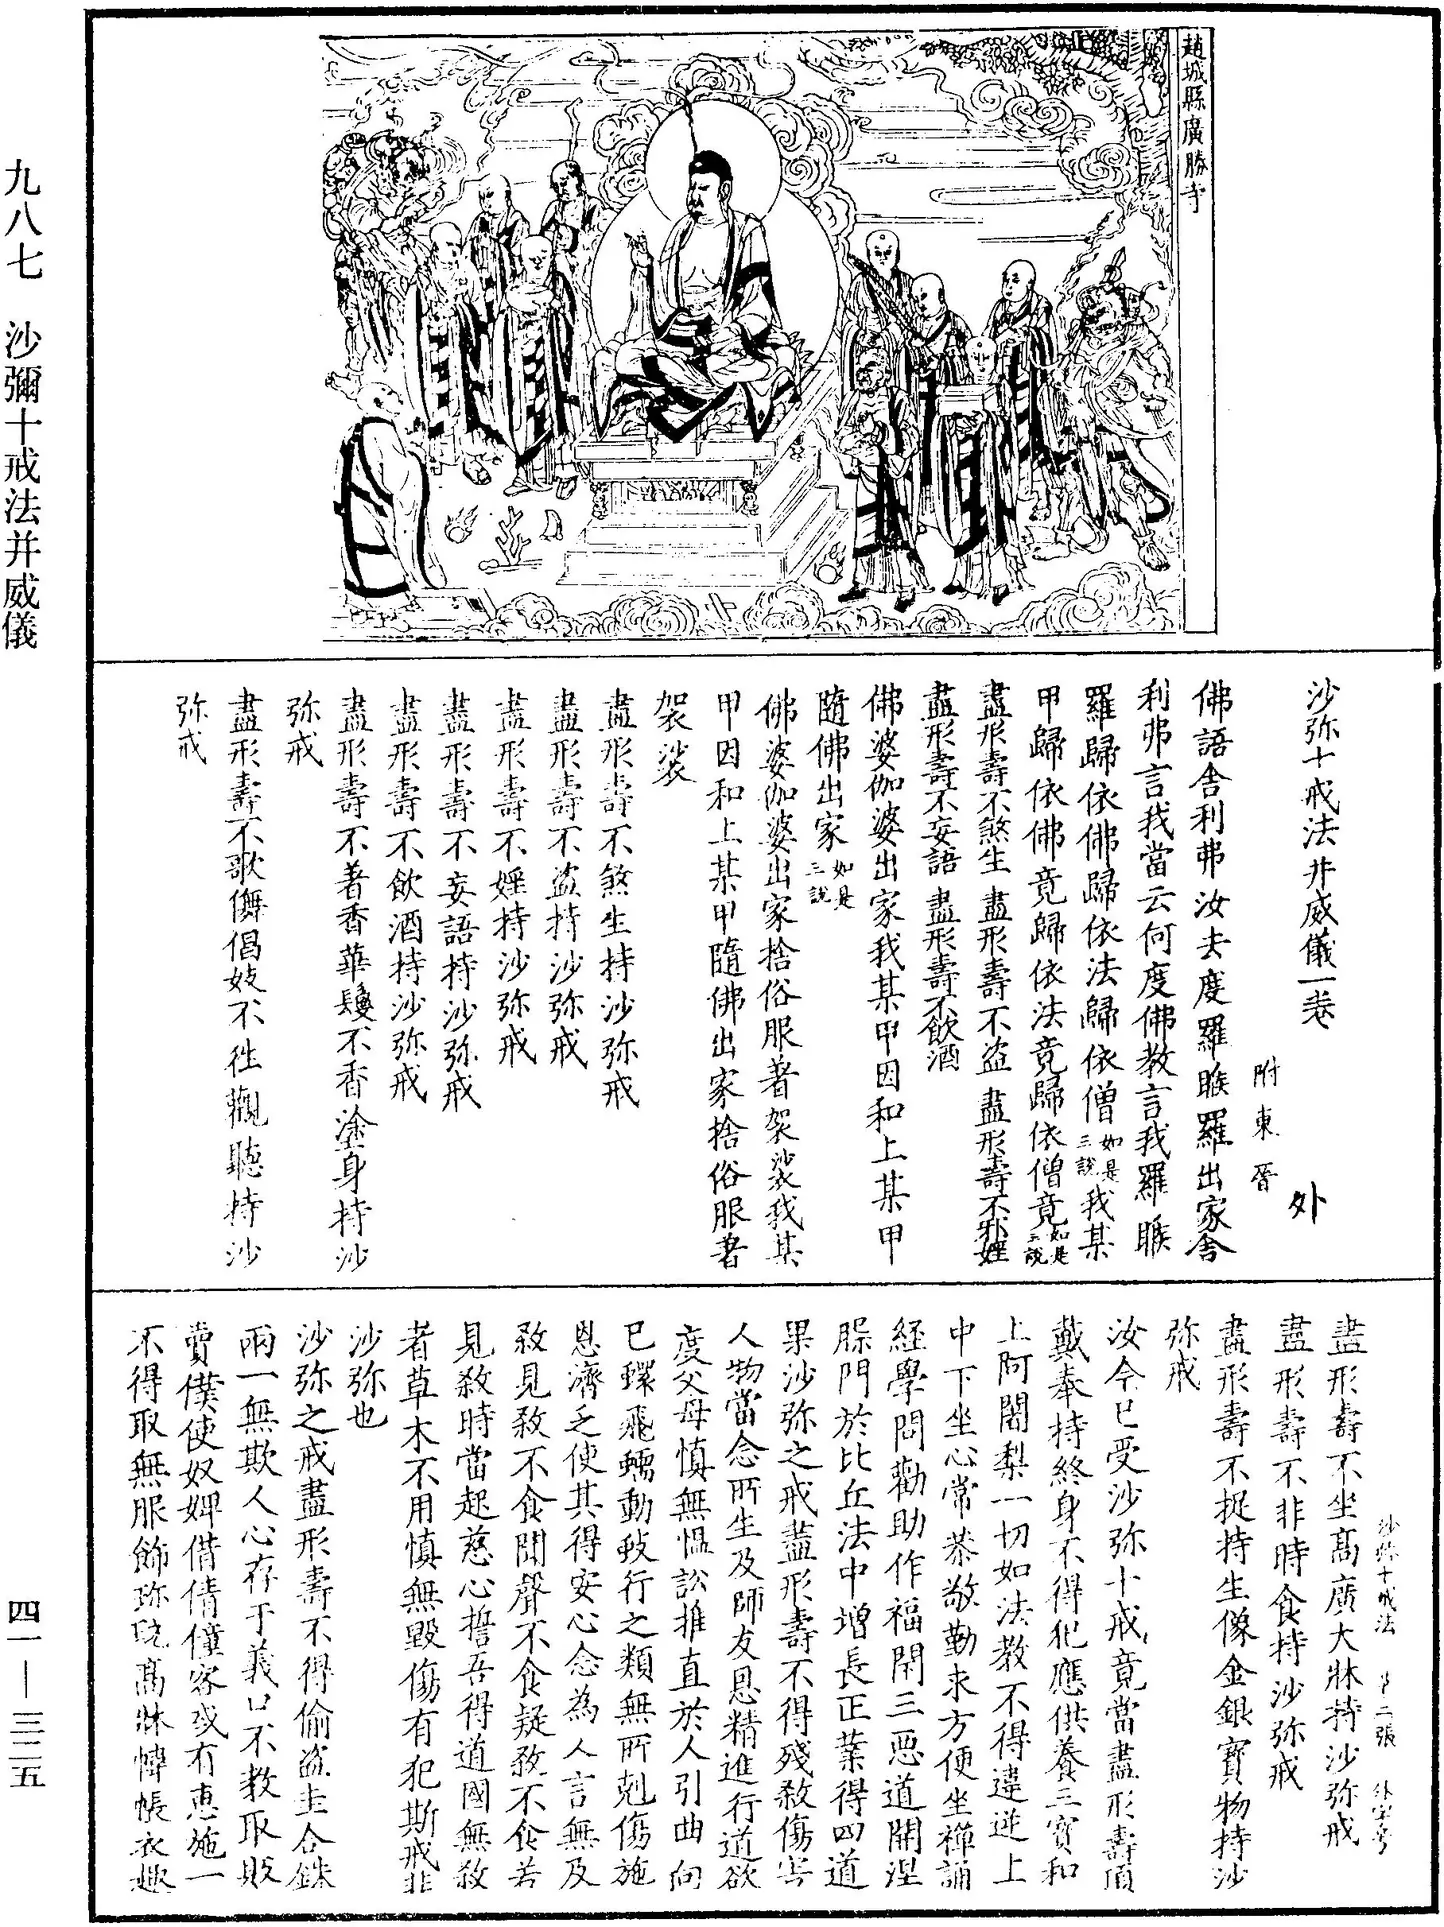 趙城縣廣勝寺
沙弥十戒法并威儀一卷 外
附東晉
佛語舍利弗汝去度羅睺羅出家舍
利弗言我當云何度佛教言我羅睺
羅歸依佛歸依法歸依僧如是三說我某
甲歸依佛竟歸依法竟歸依僧竟如是三說
盡形壽不煞生 盡形壽不盜 盡形壽不邪婬
盡形壽不妄語 盡形壽不飲酒
佛婆伽婆出家我某甲因和上某甲
隨佛出家如是三說
佛婆伽婆出家捨俗服著袈裟我某
甲因和上某甲隨佛出家捨俗服著
袈裟
盡形壽不煞生持沙弥戒
盡形壽不盜持沙弥戒
盡形壽不婬持沙弥戒
盡形壽不妄語持沙弥戒
盡形壽不飲酒持沙弥戒
盡形壽不著香華鬘不香塗身持沙
弥戒
盡形壽不歌儛倡妓不往觀聽持沙
弥戒
沙弥十戒法 第二張 外字号
盡形壽不坐髙廣大牀持沙弥戒
盡形壽不非時食持沙弥戒
盡形壽不捉持生像金銀寶物持沙
弥戒
汝今已受沙弥十戒竟當盡形壽頂
戴奉持終身不得犯應供養三寶和
上阿闍梨一切如法教不得違逆上
中下坐心常恭敬勤求方便坐禪誦
経學問勸助作福閇三惡道開涅
脲門於比丘法中增長正業得四道
果沙弥之戒盡形壽不得殘煞傷害
人物當念所生及師友恩精進行道欲
度父母慎無愠訟推直於人引曲向
已蠉飛蠕動蚑行之類無所剋傷施
恩濟乏使其得安心念為人言無及
煞見煞不食聞聲不食疑煞不食若
見煞時當起慈心誓吾得道國無煞
者草木不用慎無毀傷有犯斯戒非
沙弥也
沙弥之戒盡形壽不得偷盜圭合銖
兩一無欺人心存于義口不教取販
賣僕使奴婢借倩僮客或有惠施一
不得取無服飾珎玩髙牀幃帳衣趣
九八七 沙彌十戒法并威儀
四一—三二五